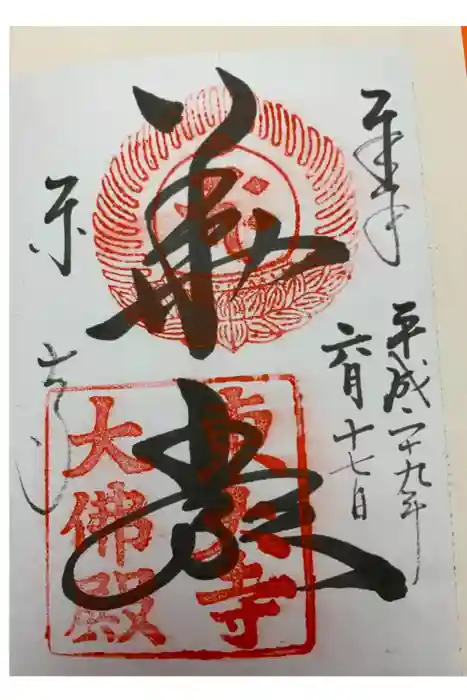 奉拝
平成二十九年
六月十七日
華嚴
東大寺
東大寺
大佛殿